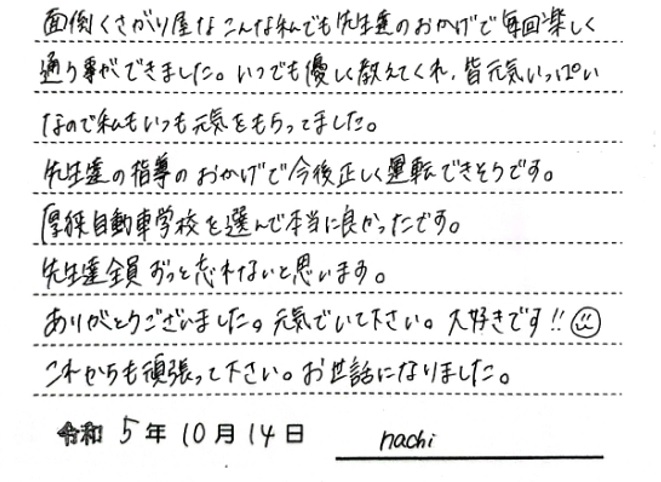 面倒くさがり屋なこんな私でも先生達のおかげで毎回楽しく
通う事ができました。いつでも優しく教えてくれ、皆元気いっぱい
なので私もいつも元気をもらってました。
先生達の指導のおかげで今後正しく運転できそうです。
厚狭自動車学校を選んで本当に良かったです。
先生達全員ずっと忘れないと思います。
ありがとうございました。元気でいて下さい。大好きです!!
これからも頑張って下さい。お世話になりました。
令和 5年10月14日 nachi